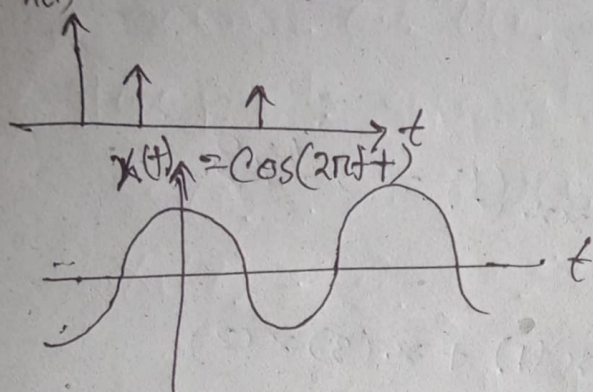 t
x(t) = Cos(2πft)
t